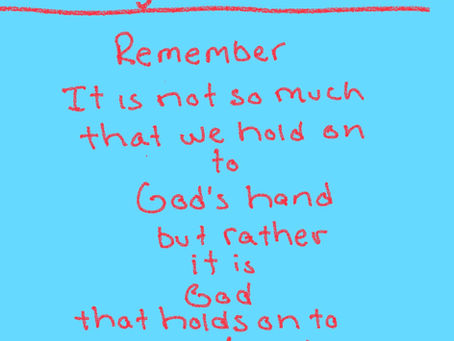 Remember
It is not so much
that we hold on
to
God's hand
but rather
it is
God
that holds on to